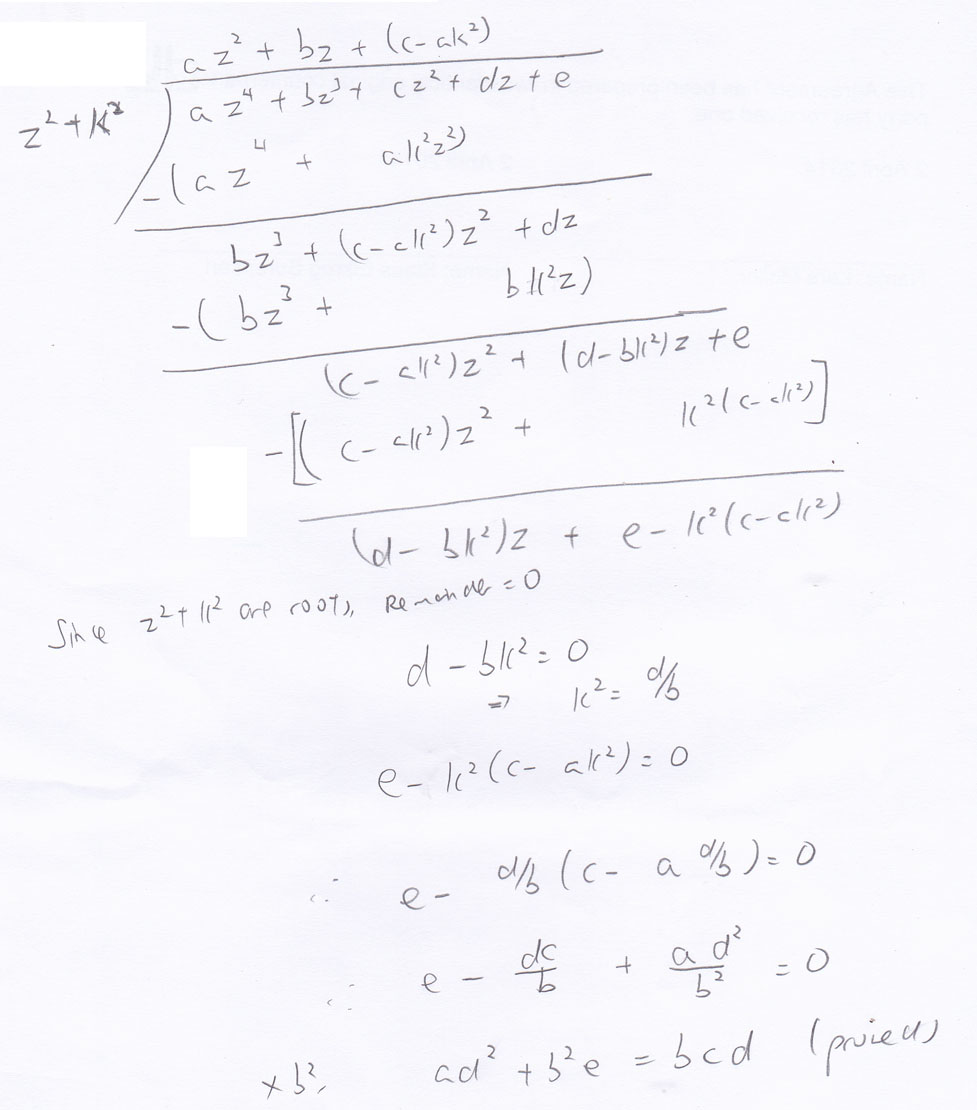 az² + bz + (c-ak²)
z²+k² ) az⁴ + bz³ + cz² + dz + e
-(az⁴ + ak²z²)
bz³ + (c-ak²)z² + dz
-(bz³ + bk²z)
(c-ak²)z² + (d-bk²)z + e
-[(c-ak²)z² + k²(c-ak²)]
(d-bk²)z + e-k²(c-ak²)
Since z²+k² are roots, Remainder = 0
d - bk² = 0
⇒ k² = d/b
e - k²(c- ak²) = 0
∴ e - d/b (c- a d/b) = 0
∴ e - dc/b + ad²/b² = 0
×b², ad² + b²e = bcd (proved)